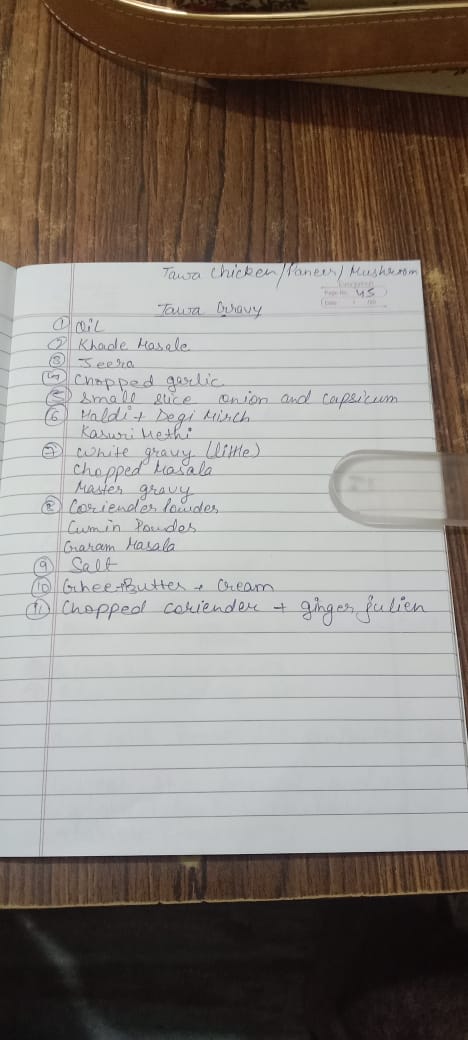 Tawa Chicken/Paneer/Mushroom
Page No. 45
Date
Tawa Gravy
① Oil
② Khade Masale
③ Jeera
④ Chopped garlic
⑤ Small slice onion and capsicum
⑥ Haldi + Degi Mirch
Kasuri Methi
⑦ White gravy (little)
Chopped Masala
Master gravy
⑧ Coriender Powder
Cumin Powder
Garam Masala
⑨ Salt
⑩ Ghee + Butter + Cream
⑪ Chopped coriender + ginger julien